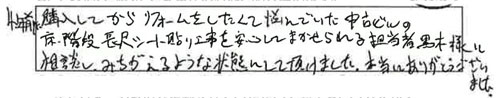 4年前に購入してからリフォームをしたくて悩んでいた中古ビルの
床・階段 長尺シート貼り工事を安心してまかせられる担当者黒木様に
相談し、みちがえるような状態にして頂けました。本当にありがとうござい
ました。